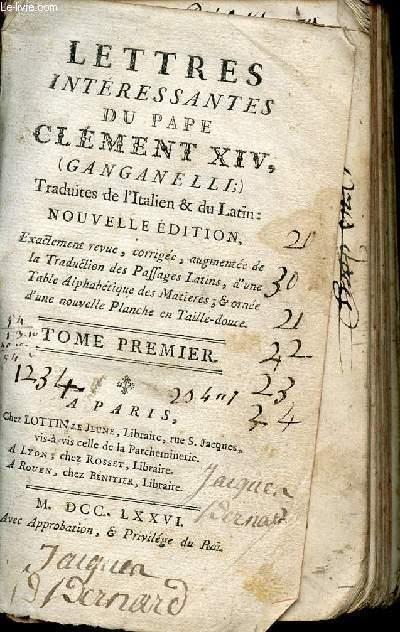 Le-livre.com
LETTRES
INTÉRESSANTES
DU PAPE
CLÉMENT XIV,
(GANGANELLI:)
Traduites de l'Italien & du Latin:
NOUVELLE ÉDITION,
Exactement revue, corrigée, augmentée de
la Traduction des Passages Latins, d'une
Table Alphabétique des Matieres; & ornée
d'une nouvelle Planche en Taille-douce.
21
30
21
22
23
34
TOME PREMIER.
1234
A PARIS,
Chez LOTTIN LE JEUNE, Libraire, rue S. Jacques,
vis-à-vis celle de la Parcheminerie.
A LYON, chez ROSSET, Libraire.
A ROUEN, chez BENITIER, Libraire.
Jacques
Bernard
M. DCC. LXXVI.
Avec Approbation, & Privilége du Roi.
Jacques
Bernard